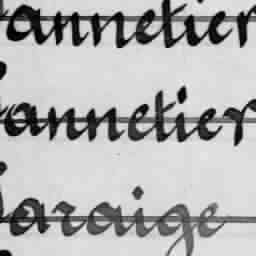 annetier
annetier
araige